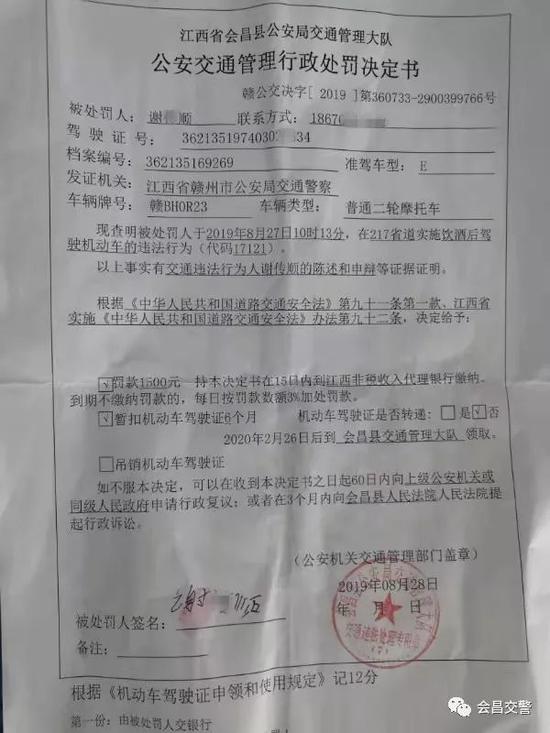 江西省会昌县公安局交通管理大队
公安交通管理行政处罚决定书
赣公交决字[ 2019 ]第360733-2900399766号
被处罚人：谢 顺 联系方式：1867
驾驶证号：36213519740302 34
档案编号：362135169269 准驾车型：E
发证机关：江西省赣州市公安局交通警察
车辆牌号：赣BH0R23 车辆类型：普通二轮摩托车
现查明被处罚人于2019年8月27日10时13分，在217省道实施饮酒后驾
驶机动车的违法行为（代码17121）。
以上事实有交通违法行为人谢传顺的陈述和申辩等证据证明。
根据《中华人民共和国道路交通安全法》第九十一条第一款、江西省
实施《中华人民共和国道路交通安全法》办法第九十二条，决定给予：
☑罚款1500元 持本决定书在15日内到江西非税收入代理银行缴纳。
到期不缴纳罚款的，每日按罚款数额3%加处罚款。
☑暂扣机动车驾驶证6个月 机动车驾驶证是否转递：□是☑否
2020年2月26日后到 会昌县交通管理大队 领取。
□吊销机动车驾驶证
如不服本决定，可以在收到本决定书之日起60日内向上级公安机关或
同级人民政府申请行政复议；或者在3个月内向会昌县人民法院人民法院提
起行政诉讼。
（公安机关交通管理部门盖章）
2019年08月28日
年 月 日
交通违法处理专用章
被处罚人签名：
备注：
根据《机动车驾驶证申领和使用规定》记12分
第一份：由被处罚人交银行
会昌交警